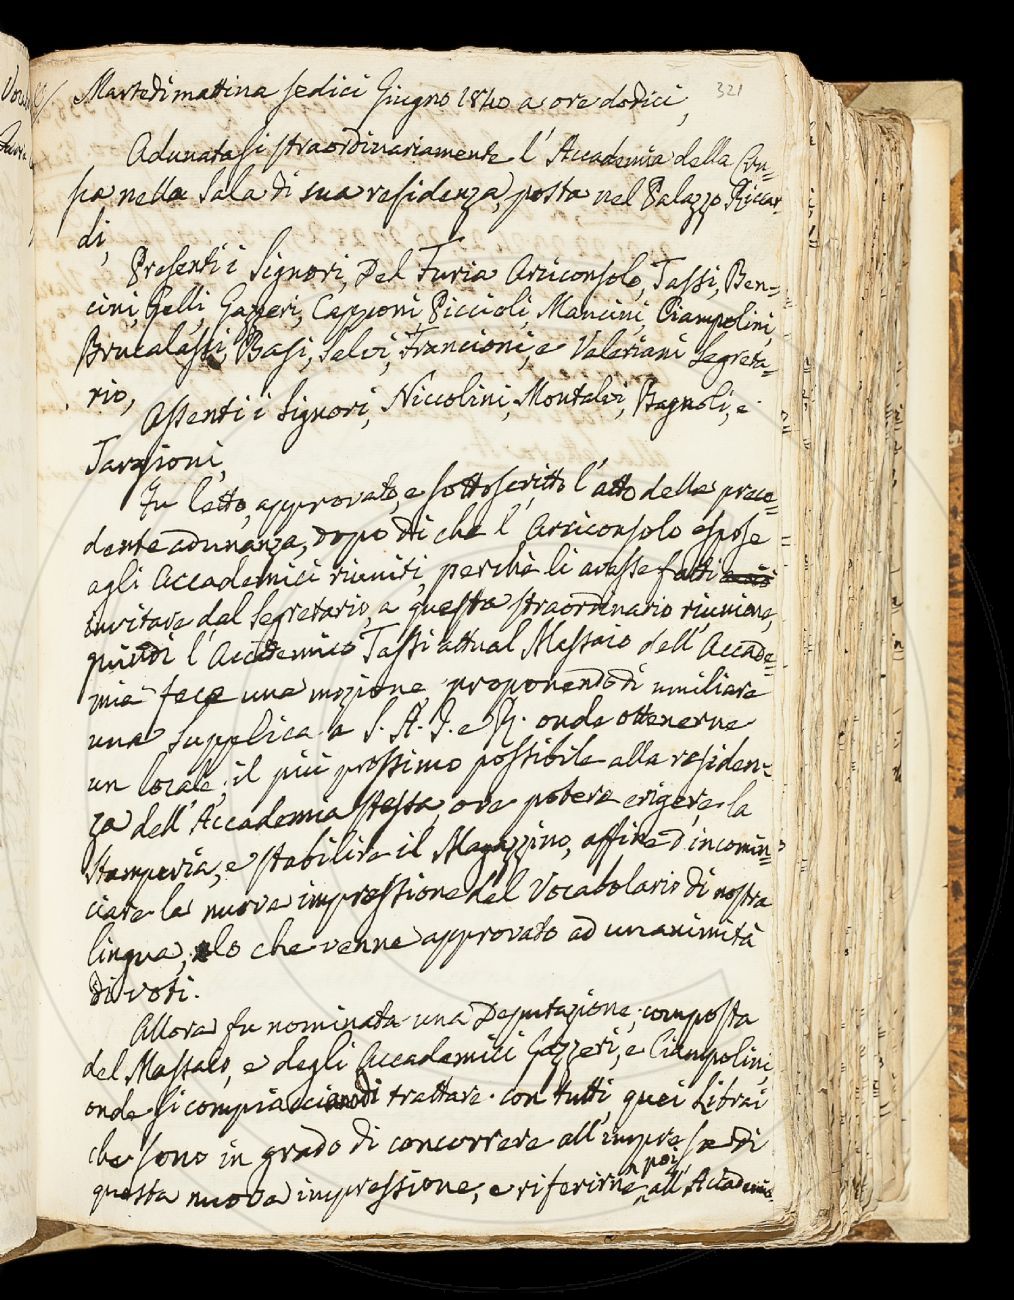 321
Martedì mattina sedici Giugno 1840 a ore dodici,
Adunatasi straordinariamente l'Accademia della Cru=
sca nella Sala di sua residenza, posta nel Palazzo Riccar
di,
Presenti i Signori, Del Furia Arciconsolo, Tassi, Ben=
cini, Gelli, Gazzeri, Capponi, Piccioli, Mancini, Ciampolini,
Brucalassi, Basi, Selvi, Francioni, e Valeriani Segreta=
rio,
Assenti i Signori, Niccolini, Montalvi, Bagnoli, e
Targioni,
Fu letto, approvato, e sottoscritto l'atto della prece=
dente adunanza, dopo di che l'Arciconsolo espose
agli Accademici riuniti, perchè li avesse fatti
invitare dal Segretario, a questa straordinario riunione,
quindi l'Accademico Tassi attual Massaio dell'Accade=
mia fece una mozione proponendo di umiliare
una Supplica a S. A. I. e R. onde ottenerne
un locale, il più prossimo possibile alla residen=
za dell'Accademia stessa, ove potere erigere la
Stamperia, e stabilire il Magazzino, affine d'incomin=
ciare la nuova impressione del Vocabolario di nostra
lingua, lo che venne approvato ad unanimità
di voti.
Allora fu nominata una Deputazione, composta
del Massaio, e degli Accademici Gazzeri, e Ciampolini,
onde si compiacciano di trattare con tutti quei Librai
che sono in grado di concorrere all'impresa di
questa nuova impressione, e riferirne poi all'Accademia